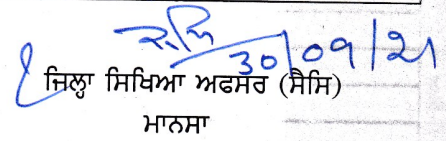 30/09/21
ਜਿਲ੍ਹਾ ਸਿਖਿਆ ਅਫਸਰ (ਸੈਸਿ)
ਮਾਨਸਾ